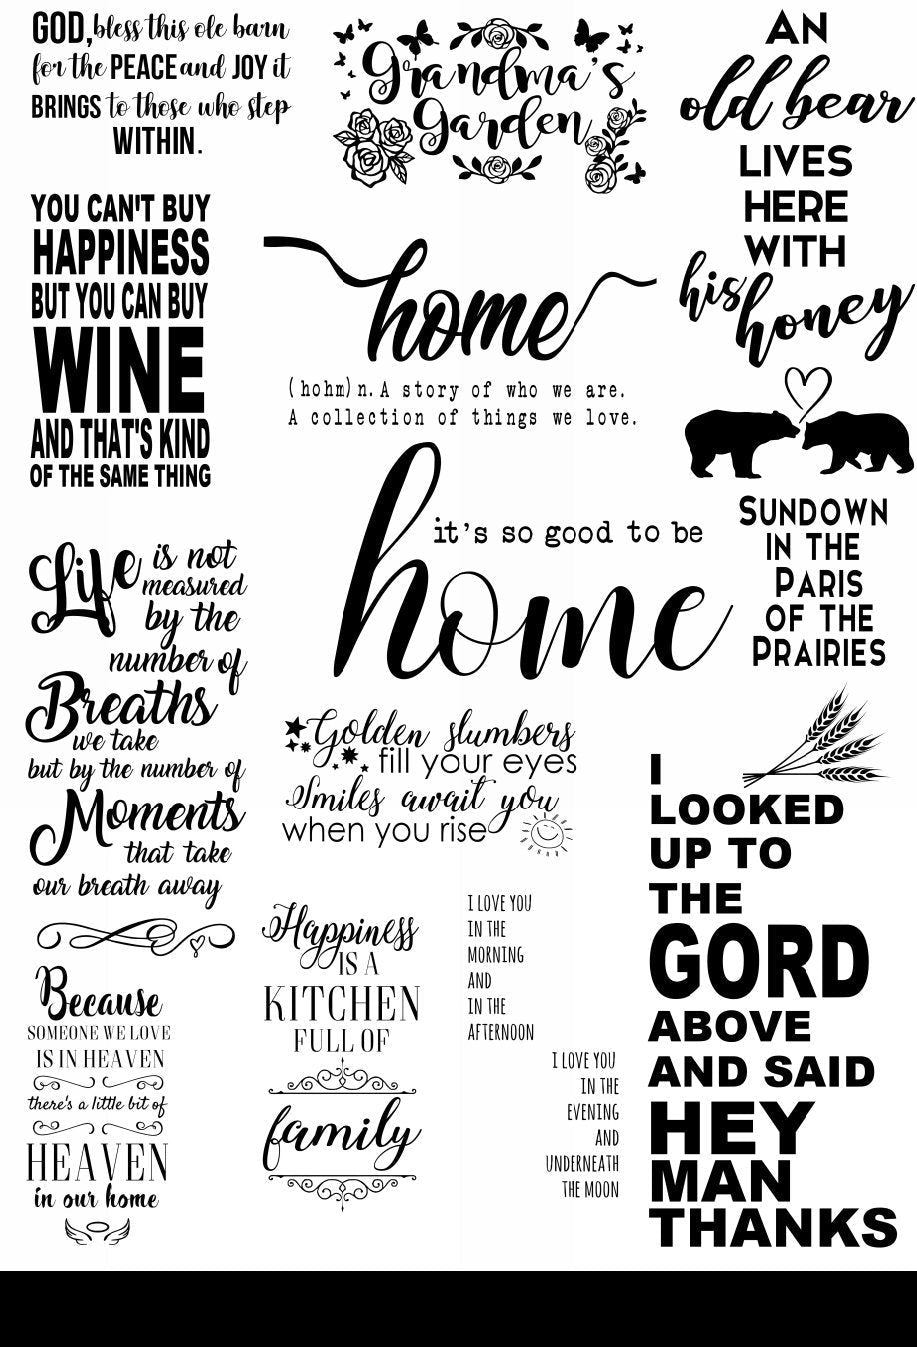 GOD, bless this ole barn
for the PEACE and JOY it
BRINGS to those who step
WITHIN.
Grandma's
Garden
AN
old bear
LIVES
HERE
WITH
his
honey
YOU CAN'T BUY
HAPPINESS
BUT YOU CAN BUY
WINE
AND THAT'S KIND
OF THE SAME THING
home
(hohm) n. A story of who we are.
A collection of things we love.
it's so good to be
home
SUNDOWN
IN THE
PARIS
OF THE
PRAIRIES
Life is not
measured
by the
number of
Breaths
we take
but by the number of
Moments
that take
our breath away
Golden slumbers
fill your eyes
Smiles await you
when you rise
I
LOOKED
UP TO
THE
GORD
ABOVE
AND SAID
HEY
MAN
THANKS
Because
SOMEONE WE LOVE
IS IN HEAVEN
there's a little bit of
HEAVEN
in our home
Happiness
IS A
KITCHEN
FULL OF
family
I LOVE YOU
IN THE
MORNING
AND
IN THE
AFTERNOON
I LOVE YOU
IN THE
EVENING
AND
UNDERNEATH
THE MOON